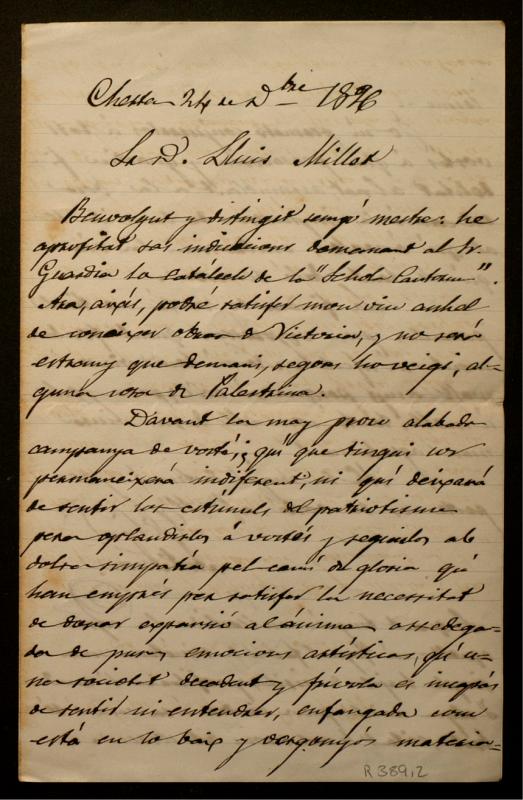 Chesta 24 de Dbre 1896
Sr. D. Lluis Millet
Benvolgut y distingit sempre mestre: he
aprofitat sas indicacions demanant al Sr.
Guardia lo catálech de la "Schola Cantorum".
Axa, aixís, podré satisfer mon viu anhel
de coneixer obras d Victoria, y no será
estrany que demani, segons ho veigi, al-
guna cosa de Palestrina.
Davant la may prou alabada
campanya de vosté, ¿qui que tingui cor
permaneixerá indiferent, ni qui deixará
de sentir los estímuls del patriotisme
pera aplaudirlos á vostés y seguirlos ab
dolsa simpatía pel camí de gloria qu
han emprés per satisfer la necessitat
de donar expansió al ánima assedega-
da de puras emocions artísticas, qu u-
na societat decadent y frívola es incapás
de sentir ni entendrer, enfangada com
está en lo baix y vergonyós materia-
R 389,2